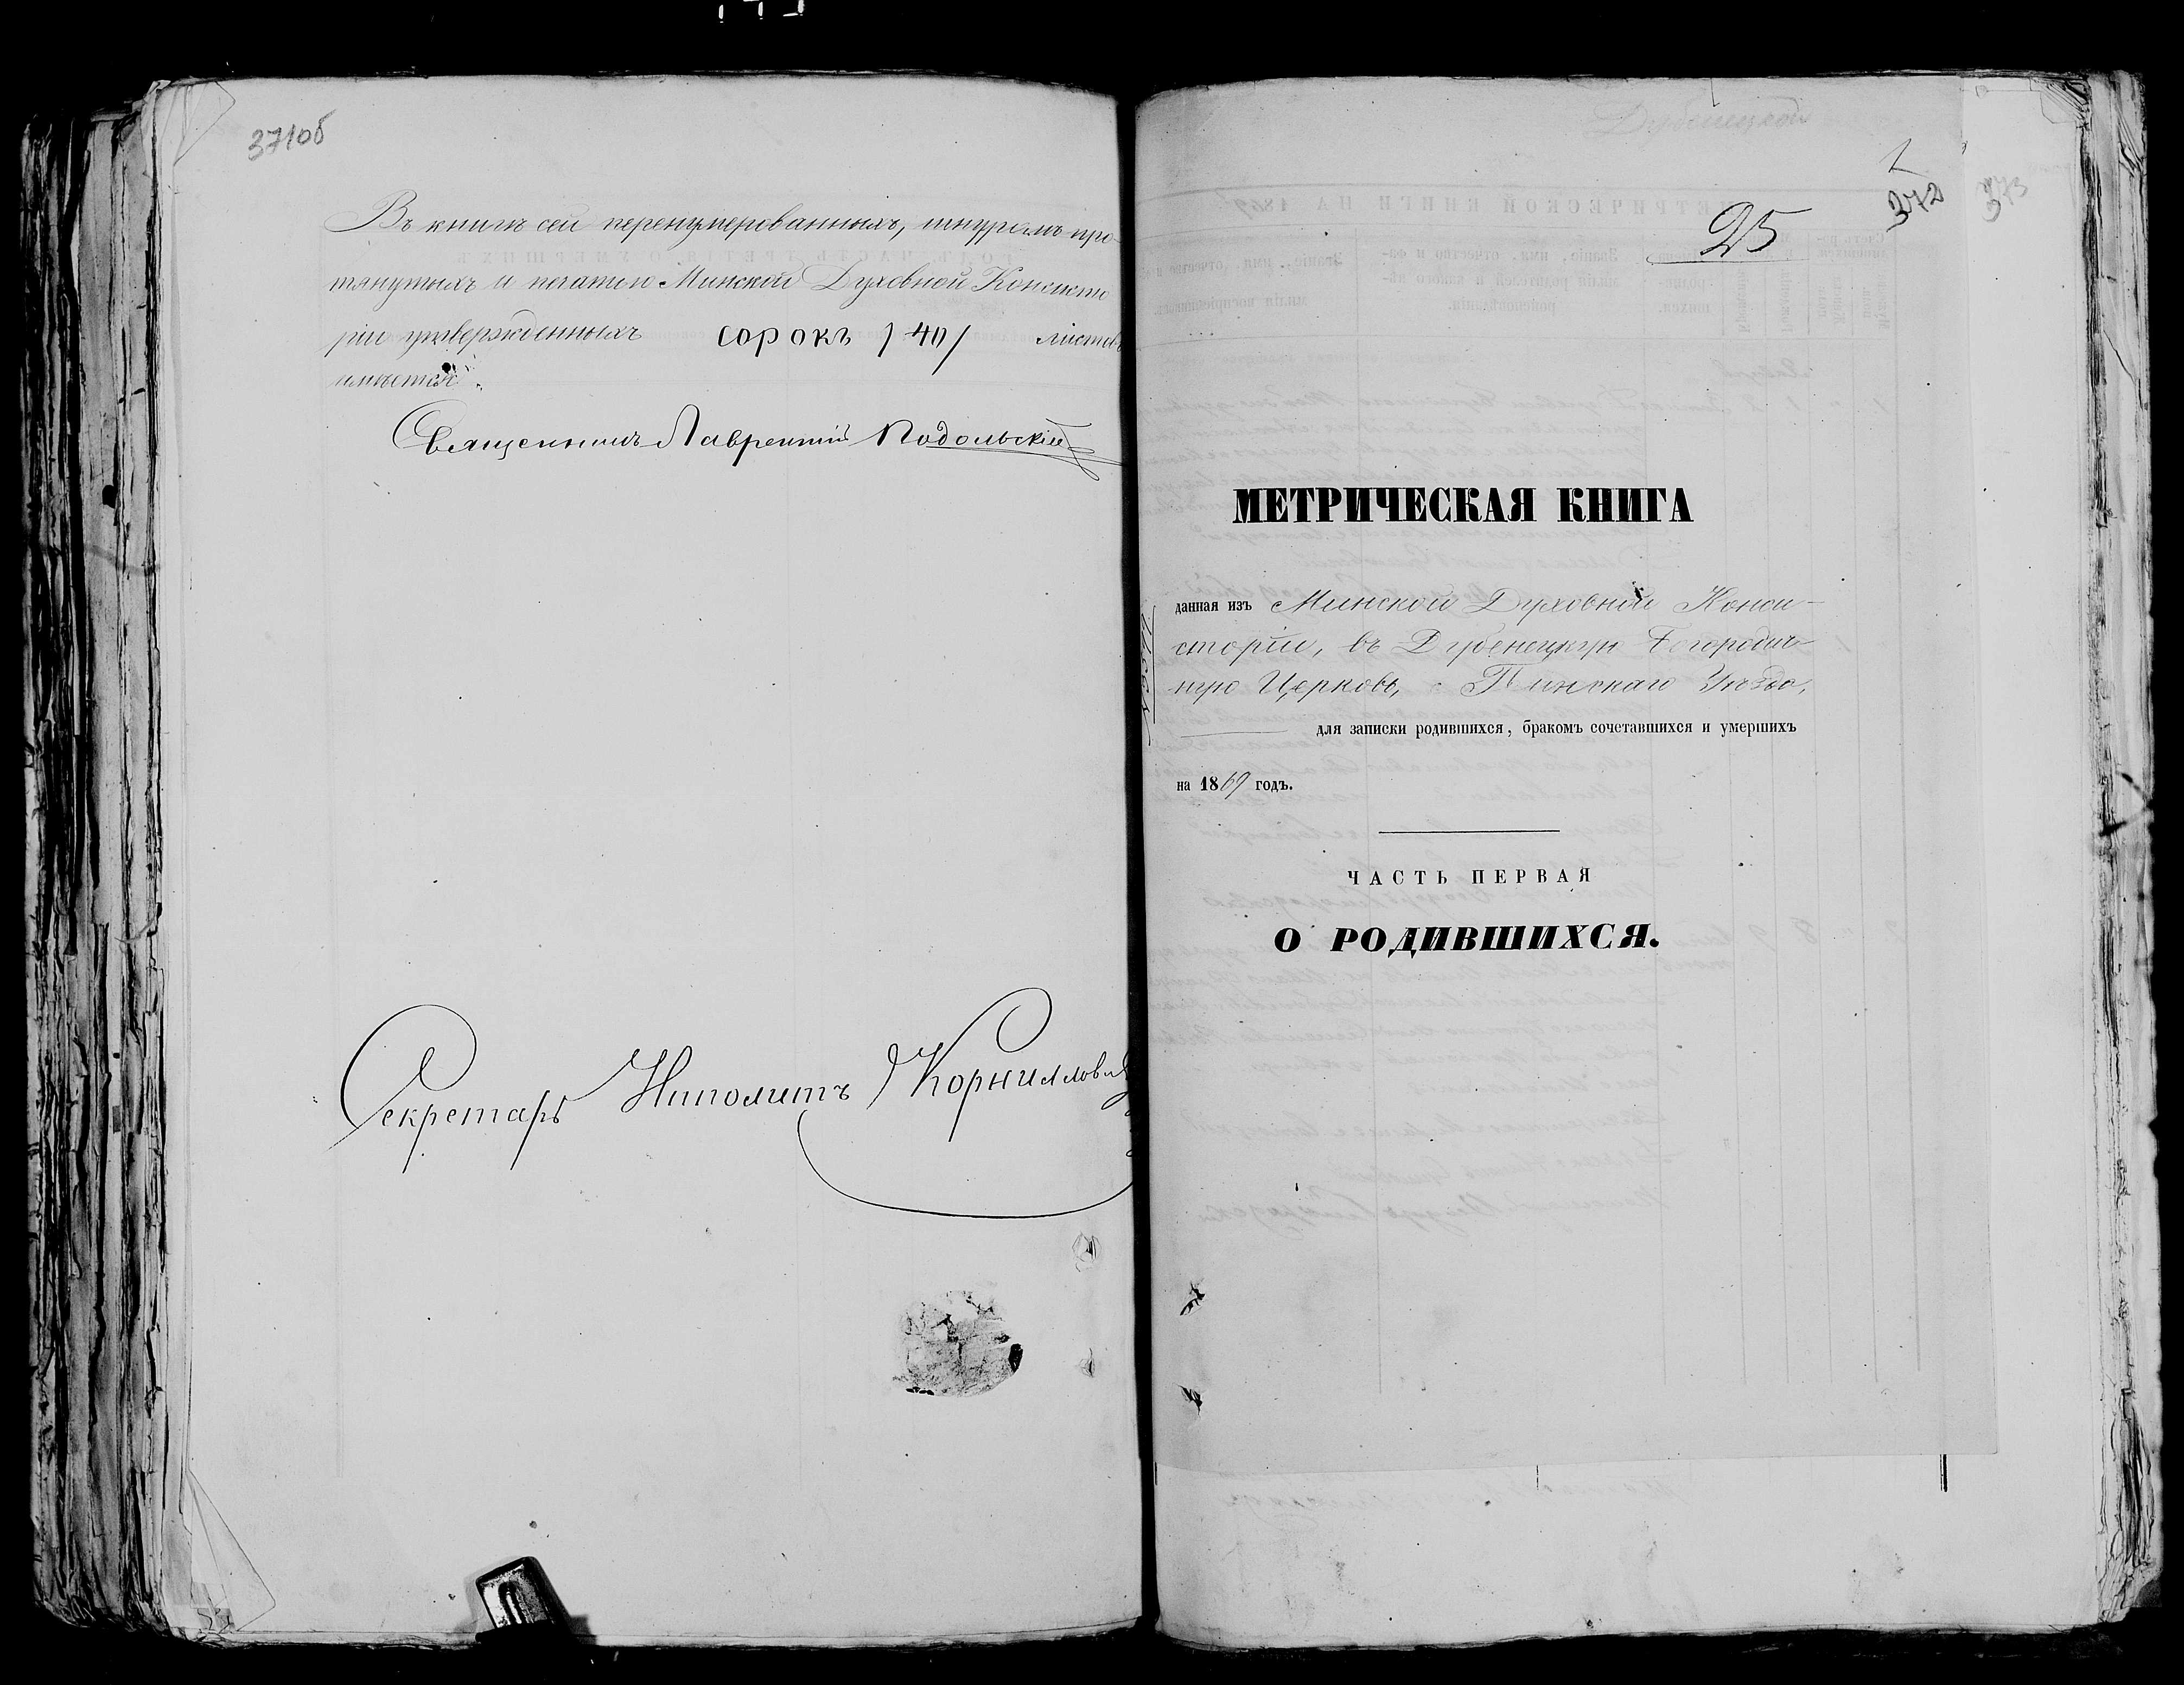 371об
Въ книгѣ сей перенумерованныхъ, шнуромъ про-
тянутыхъ и печатью Минской Духовной Консисто
ріи утвержденныхъ сорокъ /40/ листовъ
имѣется.
Священникъ Лаврентій Подольскій
Секретарь Ипполитъ Корнилович
1
372
373
25
МЕТРИЧЕСКАЯ КНИГА
данная изъ Минской Духовной Конси-
сторіи, въ Дубенецкую Богородич-
ную Церковь, Пинскаго Уѣзда,
для записки родившихся, бракомъ сочетавшихся и умершихъ
на 1869 годъ.
ЧАСТЬ ПЕРВАЯ
О РОДИВШИХСЯ.